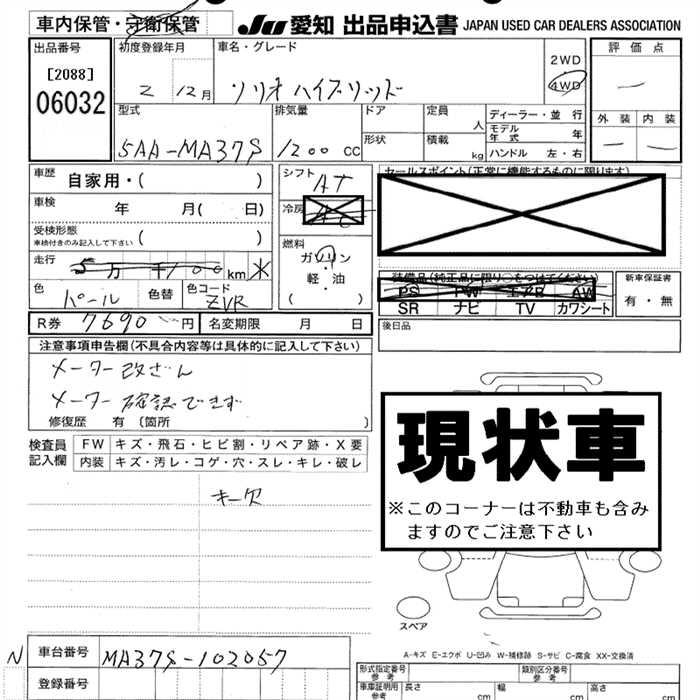 車内保管・守衛保管
JU 愛知 出品申込書 JAPAN USED CAR DEALERS ASSOCIATION
出品番号
[2088]
06032
初度登録年月
2 12月
車名・グレード
ソリオ ハイブリッド
2WD
4WD
評価点
外装 内装
型式
5AA-MA37S
排気量
1200 CC
ドア
形状
定員
人
積載
kg
ディーラー・並行
モデル年式 年
ハンドル 左・右
車歴 自家用・( )
車検 年 月( 日)
受検形態
車検付きのみ記入して下さい ( )
走行
万 千 km
色
パール
色替
色コード
ZVR
シフト
AT
冷房
燃料
ガソリン
軽・油
( )
セールスポイント(正常に機能するものに限ります)
装備品(純正品に限り○をつけてください)
PS PW エアB AW
SR ナビ TV カワシート
新車保証書
有・無
R券 7690 円
名変期限 月 日
後日品
注意事項申告欄(不具合内容等は具体的に記入して下さい)
メーター改ざん
メーター確認できず
修復歴 有 〔箇所 〕
検査員
記入欄
FW キズ・飛石・ヒビ割・リペア跡・X要
内装 キズ・汚レ・コゲ・穴・スレ・キレ・破レ
キー欠
現状車
※このコーナーは不動車も含み
ますのでご注意下さい
スペア
A-キズ E-エクボ U-凹み W-補修跡 S-サビ C-腐食 XX-交換済
N
車台番号 MA37S-102057
登録番号
形式指定番号
参考
類別区分番号
参考
車庫証明用
参考
長さ cm
幅 cm
高さ cm